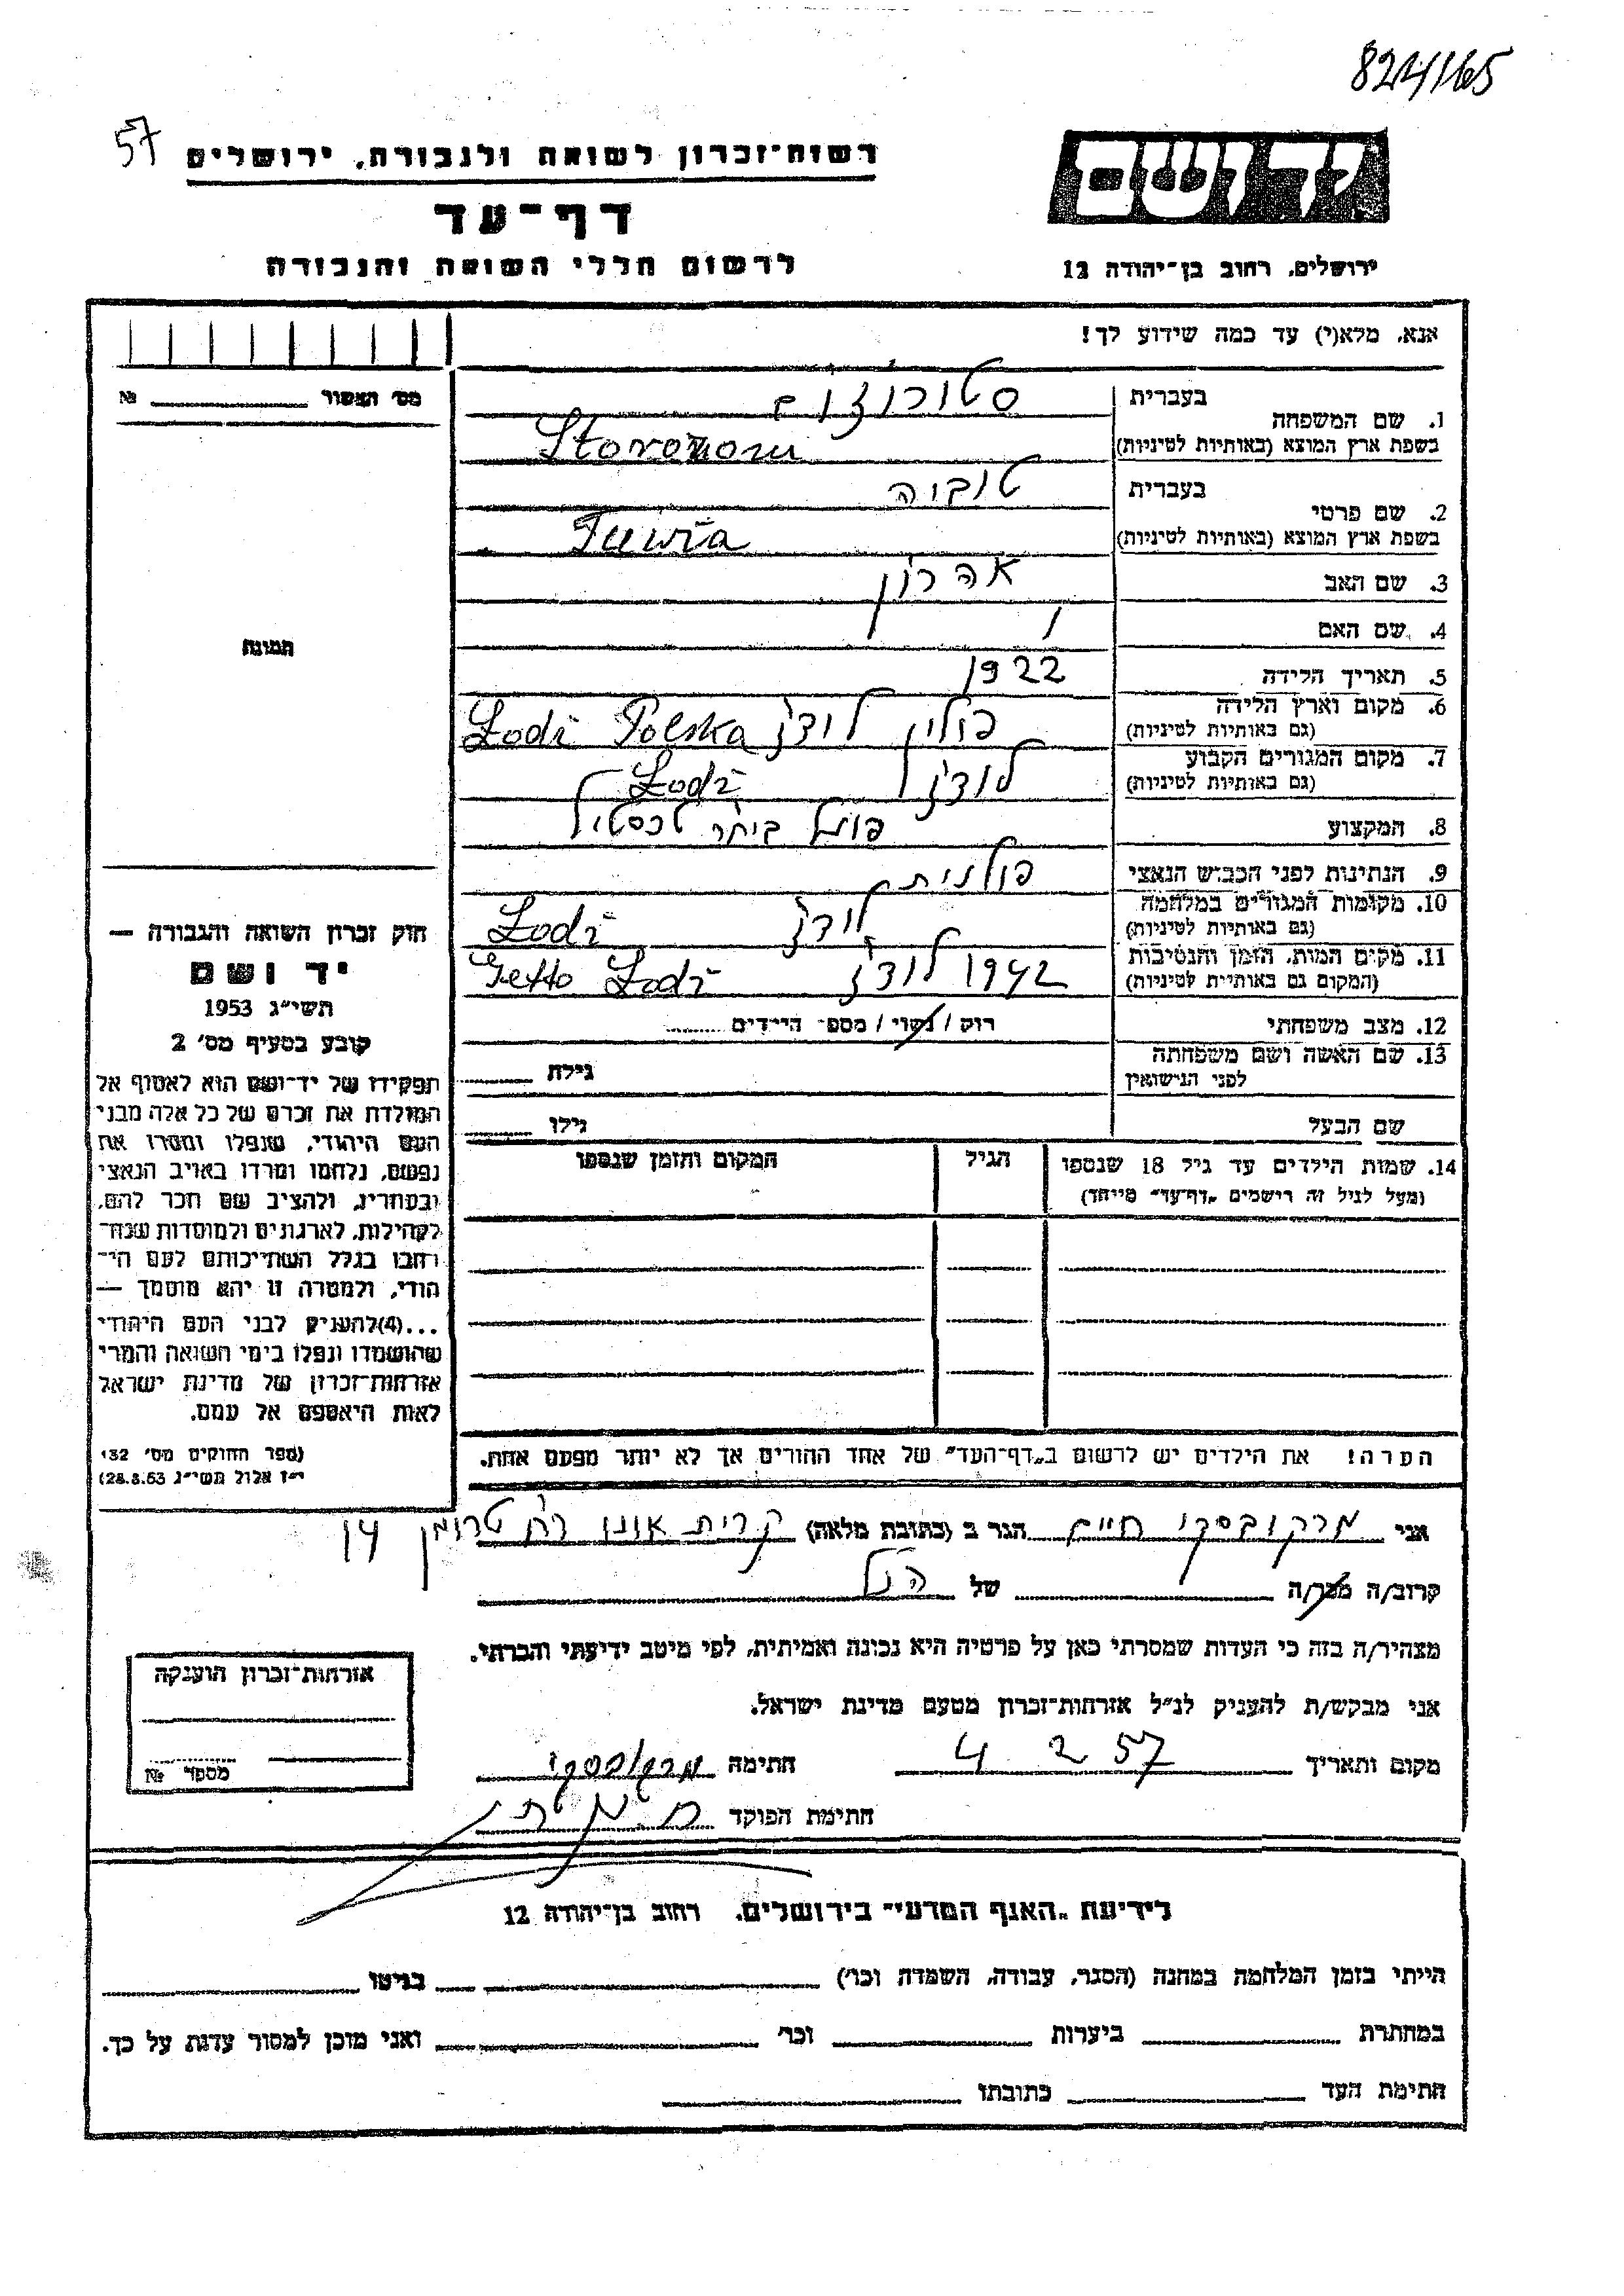 824/165
57
רשות־זכרון לשואה ולגבורה, ירושלים
יד ושם
דף־עד
לרשום חללי השואה והגבורה
ירושלים, רחוב בן־יהודה 12
אנא, מלא(י) עד כמה שידוע לך!
מס' האשור № 
1. שם המשפחה
בעברית
בשפת ארץ המוצא (באותיות לטיניות)
2. שם פרטי
בעברית טוביה
בשפת ארץ המוצא (באותיות לטיניות) Tuwia
3. שם האב אהרון
4. שם האם /
תמונה
5. תאריך הלידה 1922
6. מקום וארץ הלידה
(גם באותיות לטיניות) פולין לודז' Lodź Polska
7. מקום המגורים הקבוע
(גם באותיות לטיניות) לודז' Lodź
8. המקצוע פועל ביתר טכסטיל
9. הנתינות לפני הכבוש הנאצי פולנית
10. מקומות המגורים במלחמה
(גם באותיות לטיניות) לודז' Lodź
11. מקום המות, הזמן והנסיבות
(המקום גם באותיות לטיניות) 1942 לודז' Getto Lodź
12. מצב משפחתי רוק / נשוי / מספר הילדים
13. שם האשה ושם משפחתה
לפני הנישואין גילה
שם הבעל גילו
14. שמות הילדים עד גיל 18 שנספו הגיל המקום והזמן שנספו
(מעל לגיל זה רישמים „דף־עד" מיוחד)
חוק זכרון השואה והגבורה —
יד ושם
תשי"ג 1953
קובע בסעיף מס' 2
תפקידו של יד־ושם הוא לאסוף אל
המולדת את זכרם של כל אלה מבני
העם היהודי, שנפלו ומסרו את
נפשם, נלחמו ומרדו באויב הנאצי
ובעוזריו, ולהציב שם וזכר להם,
לקהילות, לארגונים ולמוסדות שנח־
רבו בגלל השתייכותם לעם הי־
הודי, ולמטרה זו יהא מוסמך —
...(4)להעניק לבני העם היהודי
שהושמדו ונפלו בימי השואה והמרי
אזרחות־זכרון של מדינת ישראל
לאות היאספם אל עמם.
(ספר החוקים מס' 132
י"ז אלול תשי"ג 28.8.53)
הערה! את הילדים יש לרשום ב„דף־העד" של אחד ההורים אך לא יותר מפעם אחת.
אני מרקובסקי חיים הגר ב (כתובת מלאה) קרית אונו רח' טרומן 14
קרוב/ה מכר/ה של הנ"ל
מצהיר/ה בזה כי העדות שמסרתי כאן על פרטיה היא נכונה ואמיתית, לפי מיטב ידיעתי והכרתי.
אני מבקש/ת להעניק לנ"ל אזרחות־זכרון מטעם מדינת ישראל.
מקום ותאריך 4 2 57 חתימה מרקובסקי
חתימת הפוקד
אזרחות־זכרון הוענקה
מספר №
לידיעת „האגף המדעי" בירושלים, רחוב בן־יהודה 12
הייתי בזמן המלחמה במחנה (הסגר, עבודה, השמדה וכו') בגיטו
במחתרת ביערות וכו' ואני מוכן למסור עדות על כך.
חתימת העד כתובתו